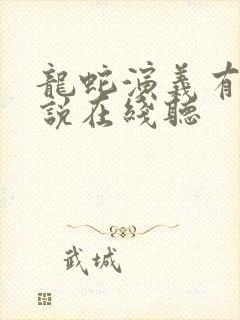 龍蛇演義有
說在綫聽
武城